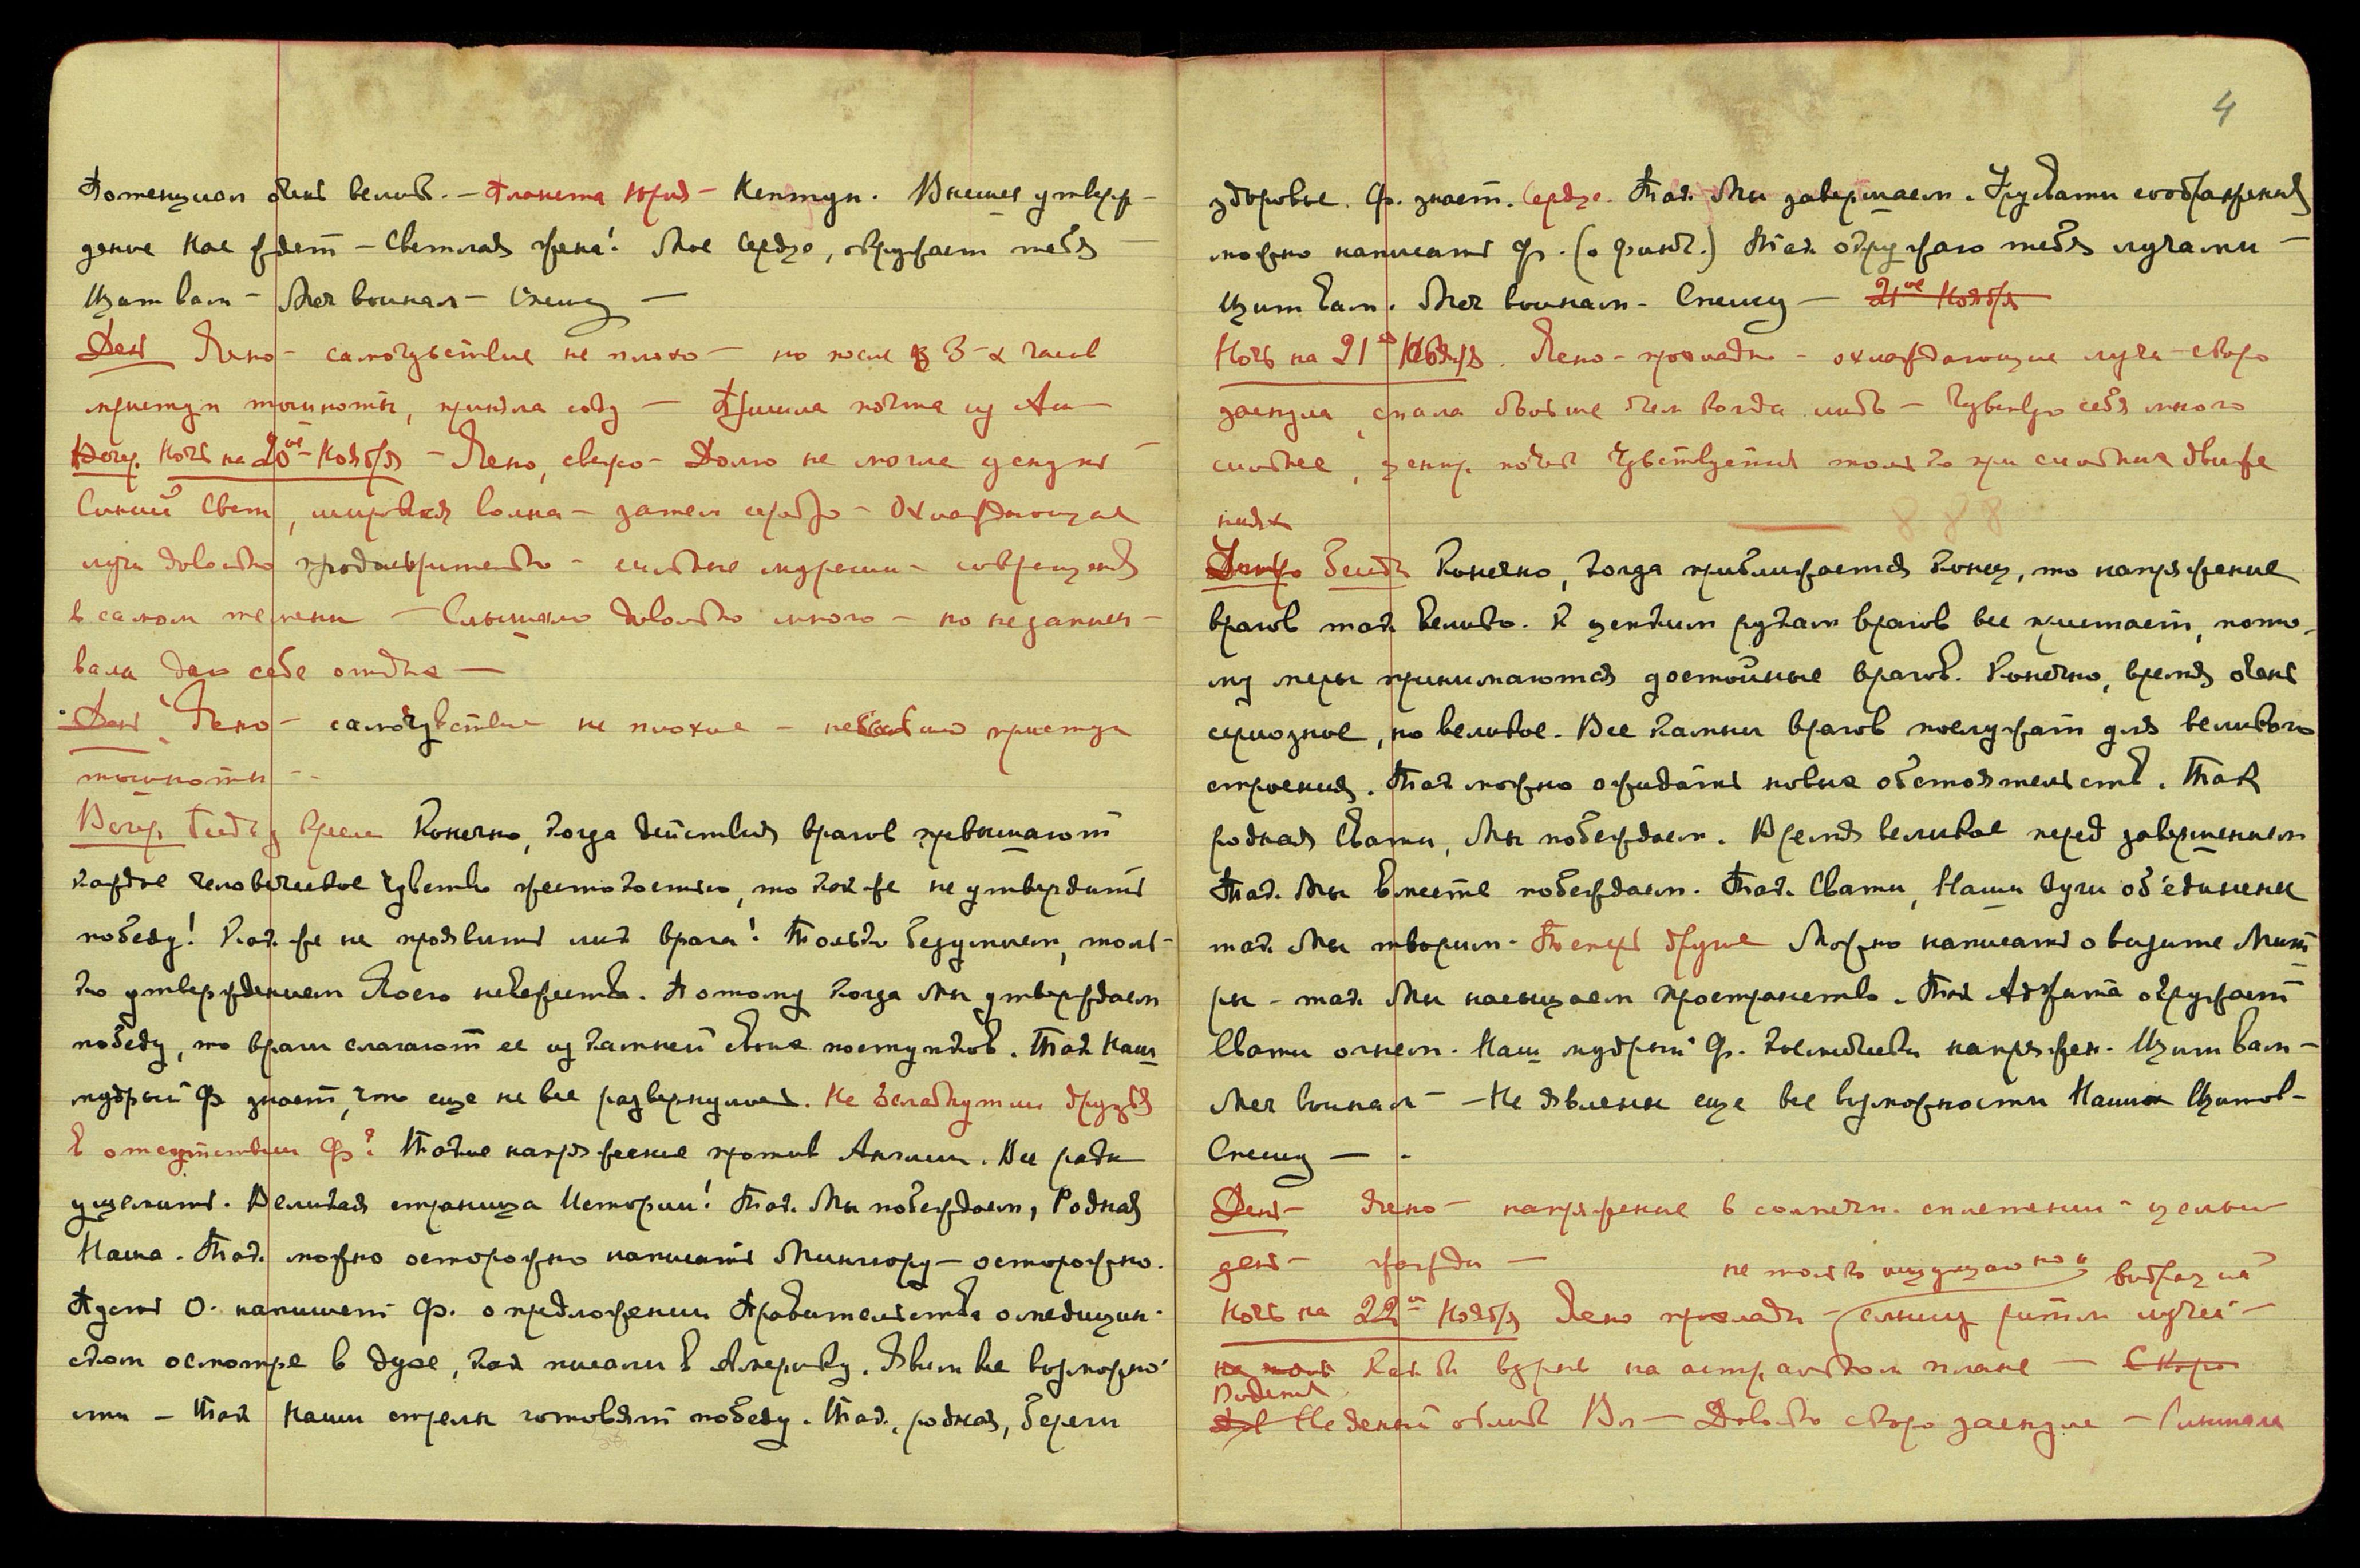 Потенциал очень велик. – Планета Юрия – Нептун. Высшее утверж-
дение Нас ждет – Светлая жена! Мое Сердце, окружает тебя –
Щит вам – Меч воинам – Спешу –
День Ясно – самочувствие не плохо – но после 3-х часов
приступ тошноты, приняла соду – Пришла почта из Ам –
Вечер. Ночь на 20ое Ноября – Ясно, свежо – Долго не могла уснуть –
Синий Свет, широкая волна – затем серебро – Охлаждающие
лучи довольно продолжительно – сильные – сокращения
в самом темени – Слышало довольно много – но не записы-
вала даю себе отдых –
День. Ясно – самочувствие не плохое – небольшой приступ
тошноты –
Вечер. Беседа с Конечно, когда действия врагов превышают
каждое человеческое чувство жестокостью, то как же не утвердить
победу! Как же не проявить лик врага! Только безумием, толь-
ко утверждением Моего невежества. Потому когда Мы утверждаем
победу, то враги слагают ее из камней своих поступков. Так Наш
мудрый Ф знает, что еще не все развернулось. Не ослабнут ли друзья
в отсутствии Ф? Такое напряжение против Англии. Все рады
ущемить. Великая страница Истории! Так Мы побеждаем, Родная
Наша. Так можно осторожно написать – осторожно.
Пусть О. напишет Ф. о предложении Правительства о медицин-
ском осмотре в духе, как писали в Америку. Явим все возможно-
сти – Так Наши стрелы готовят победу. Так, родная, береги
4
здоровье. Ф. знает. Сердце. Так Мы завершаем. соображения
можно написать Ф. (о финанс.) Так окружаю тебя лучами –
Щит вам. Меч воинам – Спешу – 21ое Ноября
Ночь на 21ое Ноября. Ясно – прохладно – охлаждающие лучи – скоро
заснула, спала больше чем когда либо – Чувствую себя много
сильнее, центр почти чувствуется только при сильных движе
ниях
888
Утро Беседа Конечно, когда приближается Конец, то напряжение
врагов так велико. К рукам врагов все пристает, пото-
му меры принимаются достойные врагов. Конечно, время очень
серьозное, но великое. Все камни врагов послужат для великого
строения. Так можно ожидать новых обстоятельств. Так
родная Свати, Мы побеждаем. Время великое перед завершением
Так Мы вместе побеждаем. Так Свати, Наши лучи об'единены
так Мы творим. Теперь другое Можно написать о визите
ры – так Мы насыщаем пространство. Так окружает
Свати огнем. Наш мудрый Ф. космически напряжен. Щит вам –
Меч воинам – – Не явлены еще все возможности Наших Щитов –
Спешу –
День – Ясно – напряжение в солнечн. сплетении – целый
день – жажда –
не только ощущаю но и
Ночь на 22ое Ноября Ясно прохладно – слышу ритм лучей –
не толь как бы взрыв на астральном плане – Скоро
Видела
облик Вл – Довольно скоро заснула –